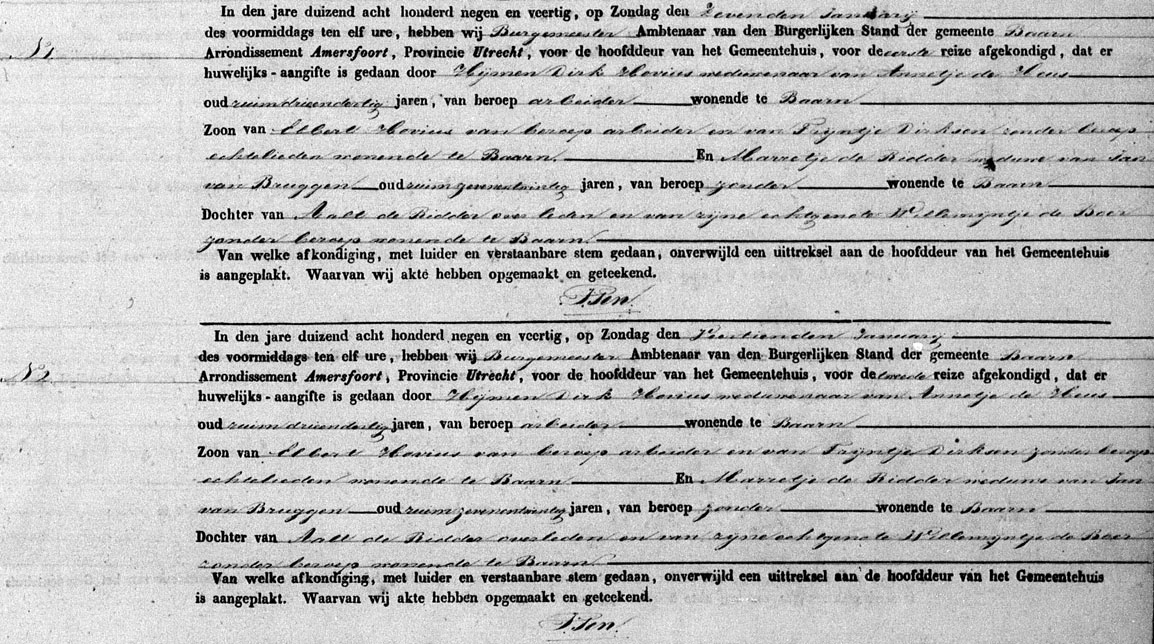 In den jare duizend acht honderd negen en veertig, op Zondag den Zevenden Januarij
N 1 des voormiddags ten elf ure, hebben wij Burgemeester Ambtenaar van den Burgerlijken Stand der gemeente Baarn
Arrondissement Amersfoort, Provincie Utrecht, voor de hoofddeur van het Gemeentehuis, voor de eerste reize afgekondigd, dat er
huwelijks-aangifte is gedaan door Hijmen Dirk Hovius weduwenaar van Annetje de Heus
oud ruim drieendertig jaren, van beroep arbeider wonende te Baarn
Zoon van Elbert Hovius van beroep arbeider en van Trijntje Dirksen zonder beroep
echtelieden wonende te Baarn. En Marretje de Ridder weduwe van Jan
van Bruggen oud ruim zevenentwintig jaren, van beroep zonder wonende te Baarn
Dochter van Aalt de Ridder overleden en van zijne echtgenote Willemijntje de Boer
zonder beroep wonende te Baarn.
Van welke afkondiging, met luider en verstaanbare stem gedaan, onverwijld een uittreksel aan de hoofddeur van het Gemeentehuis
is aangeplakt. Waarvan wij akte hebben opgemaakt en geteekend.
F. Pen.
In den jare duizend acht honderd negen en veertig, op Zondag den Veertienden Januarij
des voormiddags ten elf ure, hebben wij Burgemeester Ambtenaar van den Burgerlijken Stand der gemeente Baarn
N 2 Arrondissement Amersfoort, Provincie Utrecht, voor de hoofddeur van het Gemeentehuis, voor de tweede reize afgekondigd, dat er
huwelijks-aangifte is gedaan door Hijmen Dirk Hovius weduwenaar van Annetje de Heus
oud ruim drieendertig jaren, van beroep arbeider wonende te Baarn
Zoon van Elbert Hovius van beroep arbeider en van Trijntje Dirksen zonder beroep
echtelieden wonende te Baarn En Marretje de Ridder weduwe van Jan
van Bruggen oud ruim zevenentwintig jaren, van beroep zonder wonende te Baarn
Dochter van Aalt de Ridder overleden en van zijne echtgenote Willemijntje de Boer
zonder beroep wonende te Baarn.
Van welke afkondiging, met luider en verstaanbare stem gedaan, onverwijld een uittreksel aan de hoofddeur van het Gemeentehuis
is aangeplakt. Waarvan wij akte hebben opgemaakt en geteekend.
F. Pen.